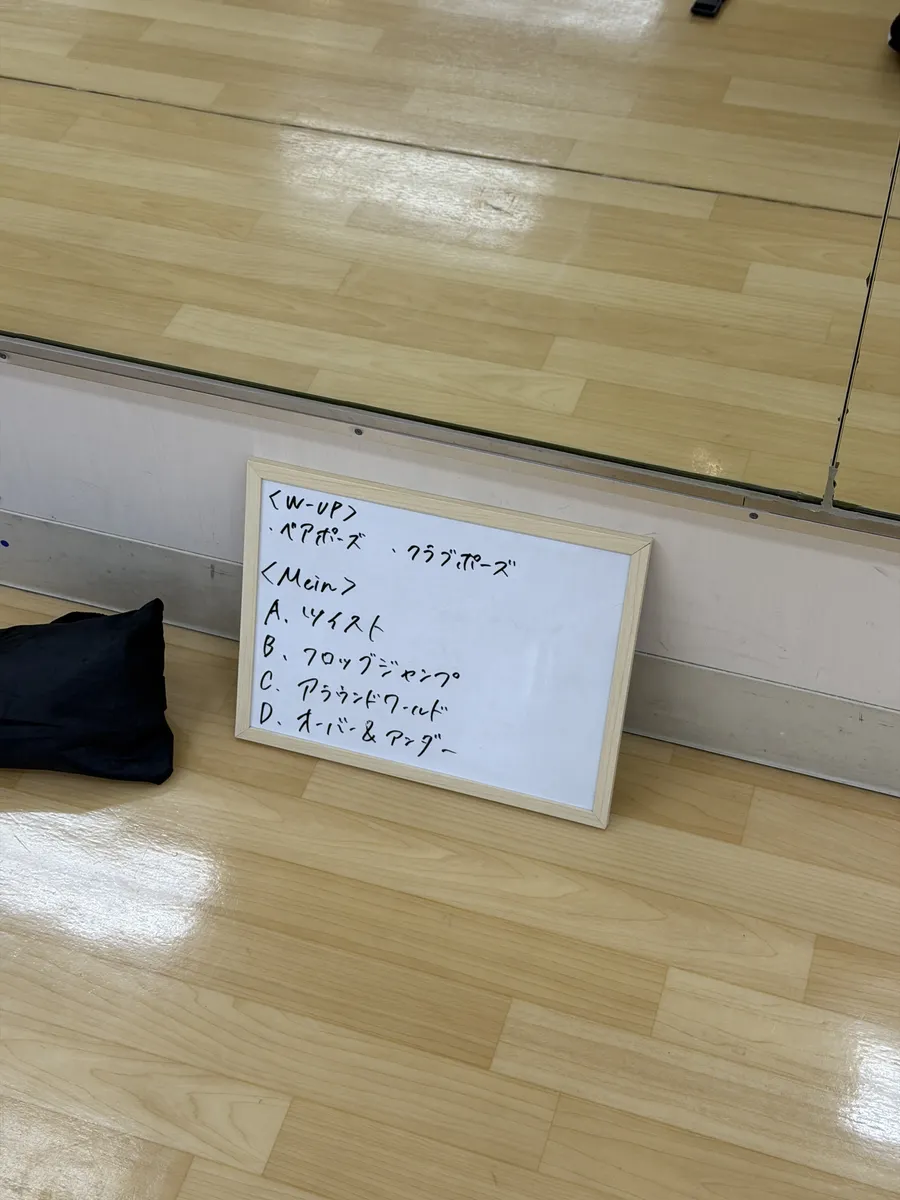 <W-UP>
・ベアポーズ 、クラブポーズ
<Mein>
A. ツイスト
B、フロッグジャンプ
C. アラウンドワールド
D、オーバー&アンダー